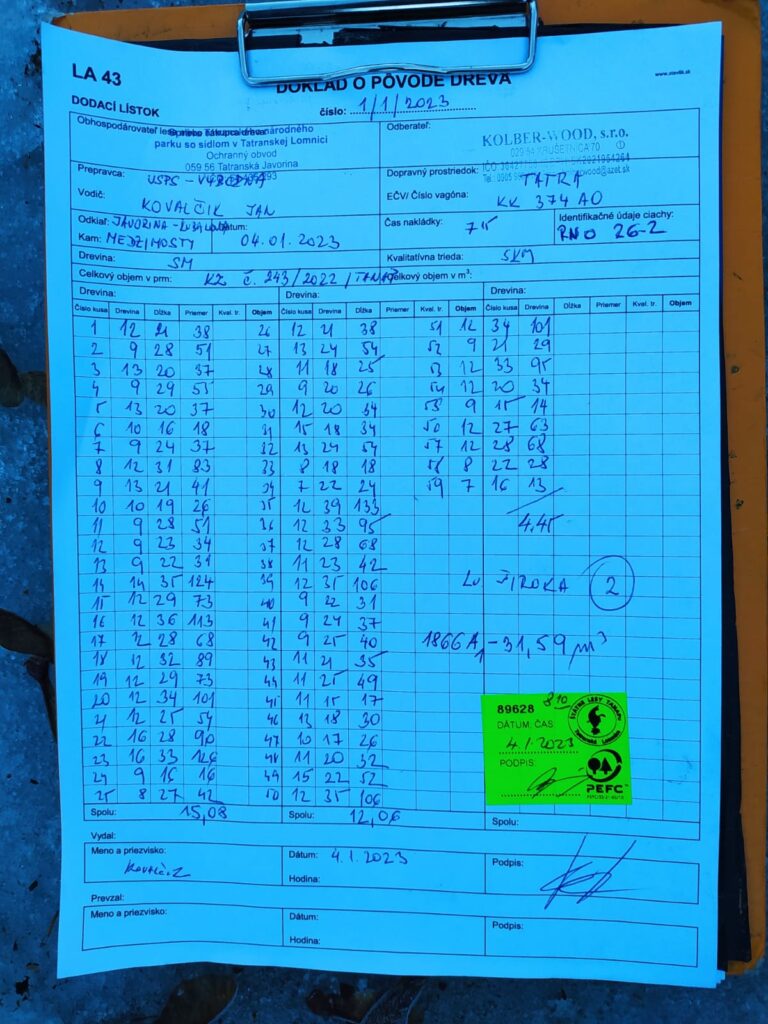 LA 43
DOKLAD O PÔVODE DREVA
www.stevlik.sk
DODACÍ LÍSTOK
číslo: 1/1/2023
Obhospodárovateľ
národného
parku so sídlom v Tatranskej Lomnici
Ochranný obvod
059 56 Tatranská Javorina
Odberateľ:
KOLBER-WOOD, s.r.o.
029 54 KRUŠETNICA 70
Prepravca:
Vodič: KOVALČIK JAN
Dopravný prostriedok: TATRA
EČV/ Číslo vagóna: KK 374 AO
Odkiaľ: JAVORINA
Kam: MEDZIMOSTY
Dátum: 04.01.2023
Čas nakládky: 7 15
Identifikačné údaje ciachy:
RNO 26-2
Drevina: SM
Kvalitatívna trieda: SKM
Celkový objem v prm: KZ č. 243/2022 / TANAP
Celkový objem v m³:
Drevina: Drevina: Drevina:
Číslo kusa Drevina Dĺžka Priemer Kval. tr. Objem Číslo kusa Drevina Dĺžka Priemer Kval. tr. Objem Číslo kusa Drevina Dĺžka Priemer Kval. tr. Objem
1 12 21 38 26 12 21 38 51 12 34 101
2 9 28 51 27 13 24 54 52 9 21 29
3 13 20 37 28 11 18 25 53 12 33 95
4 9 29 55 29 9 20 26 54 12 20 34
5 13 20 37 30 12 20 34 55 9 15 14
6 10 16 18 31 15 18 34 56 12 27 63
7 9 24 37 32 13 24 54 57 12 28 68
8 12 31 83 33 8 18 18 58 8 22 28
9 13 21 41 34 7 22 24 59 7 16 13
10 10 19 26 35 12 39 133
11 9 28 51 36 12 33 95 4,45
12 9 23 34 37 12 28 68
13 9 22 31 38 11 23 42
14 14 35 124 39 12 35 106 LV ŠIROKA 2
15 12 29 73 40 9 22 31
16 12 36 113 41 9 24 37
17 12 28 68 42 9 25 40 1866A1 - 31,59 m³
18 12 32 89 43 11 21 35
19 12 29 73 44 11 25 49
20 12 34 101 45 11 15 17
21 12 25 54 46 13 18 30
22 16 28 90 47 10 17 26
23 16 33 126 48 11 20 32
24 9 16 16 49 15 22 52
25 8 27 42 50 12 35 106
89628 8 10
DÁTUM, ČAS
4.1.2023
PODPIS:
ŠTÁTNE LESY TANAPU
Tatranská Lomnica
PEFC
Spolu: 15,08 Spolu: 12,06 Spolu:
Vydal:
Meno a priezvisko:
Dátum: 4.1.2023
Hodina:
Podpis:
Prevzal:
Meno a priezvisko:
Dátum:
Hodina:
Podpis: